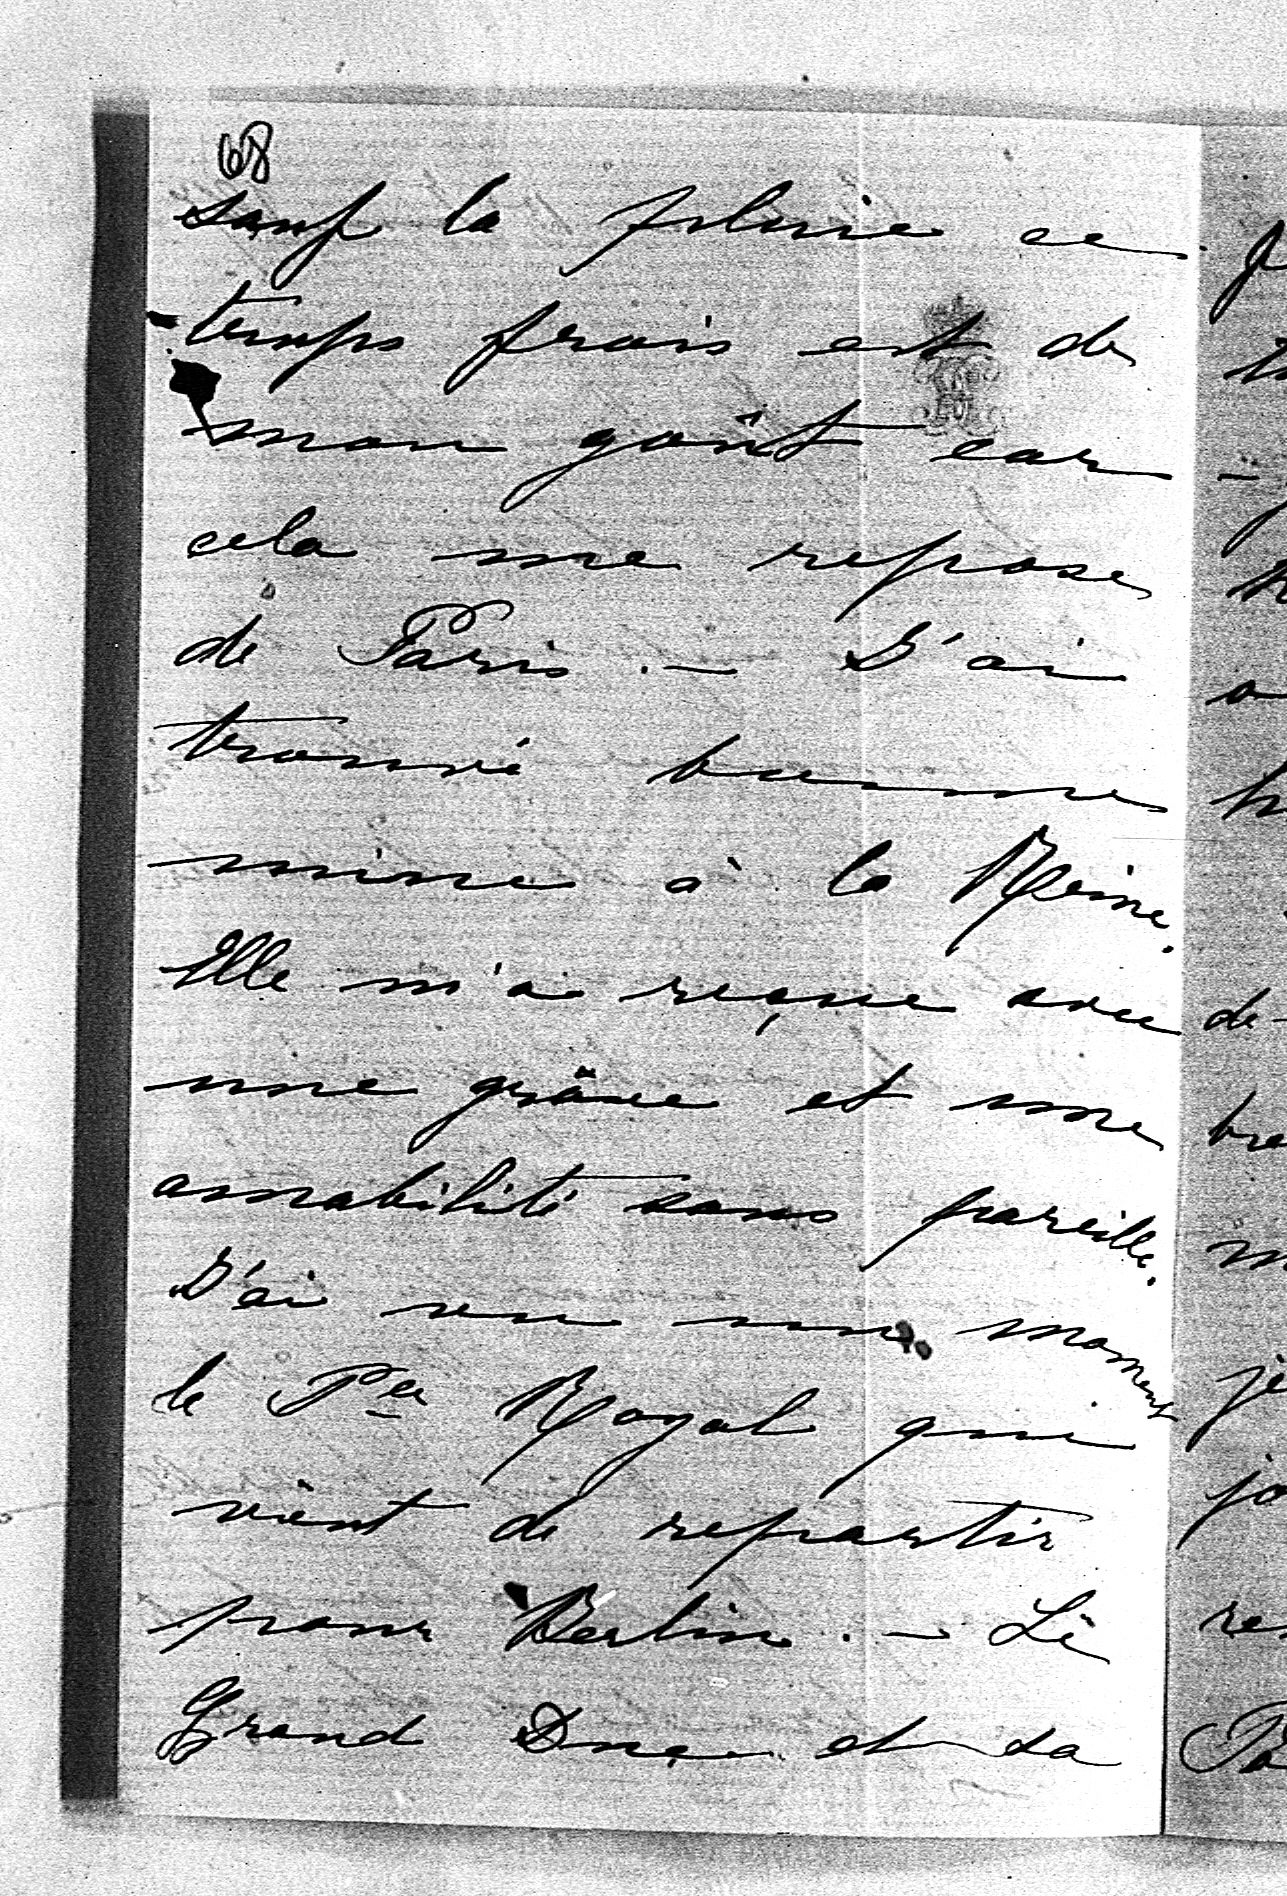 68
sauf la pluie ce
temps frais est de
mon goût car
cela me repose
de Paris. — J'ai
trouvé bonne
mine à la Reine.
Elle m'a reçue avec
une grâce et une
amabilité sans pareille.
J'ai vu un moment
le Pce Royal qui
vient de repartir
pour Berlin. — Le
Grand Duc et sa